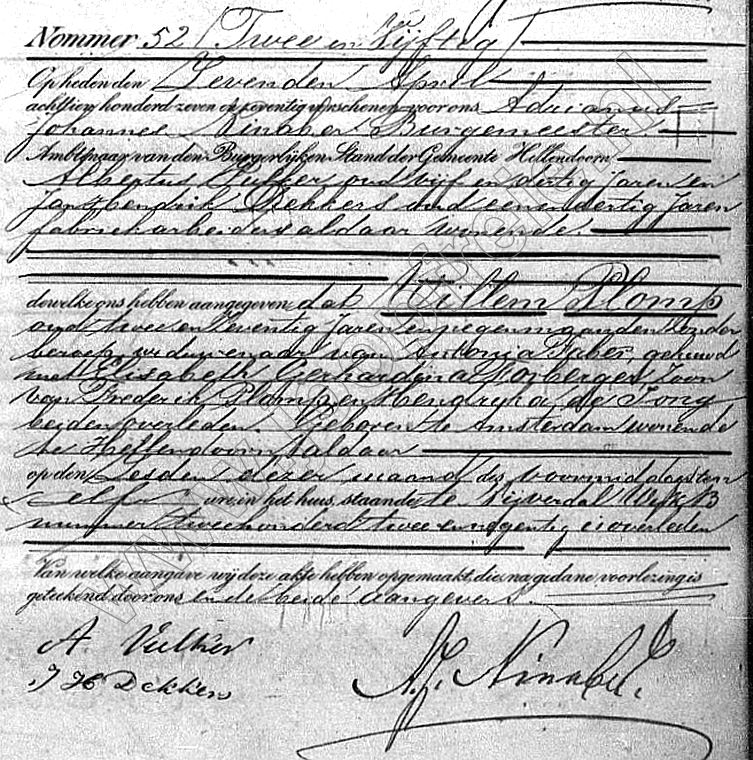 Nommer 52 (Twee en Vijftig)
Op heden den Zevenden April
achttien honderd zeven en zeventig verschenen voor ons Adrianus
Johannes Burgemeester
Ambtenaar van den Burgerlijken Stand der Gemeente Hellendoorn
Albertus oud vijf en dertig jaren en
Jan Hendrik Dekkers oud een en dertig jaren
fabriekarbeiders aldaar wonende.
dewelke ons hebben aangegeven, dat Willem Plomp
oud twee en zeventig jaren en negen maanden zonder
beroep, weduwenaar van Antonia Faber, gehuwd
met Elisabeth Gerhardina Zoon
van Frederik Plomp en Hendrika de Jong
beiden overleden. Geboren te Amsterdam wonende
te Hellendoorn aldaar
op den Zesden dezer maand des voormiddags ten
elf ure, in het huis, staande te Nijverdal Wijk B
nummer tweehonderd twee en negentig is overleden
Van welke aangave wij deze akte hebben opgemaakt, die, na gedane voorlezing is
geteekend door ons en de beide aangevers.
A
J H Dekkers
A.J.